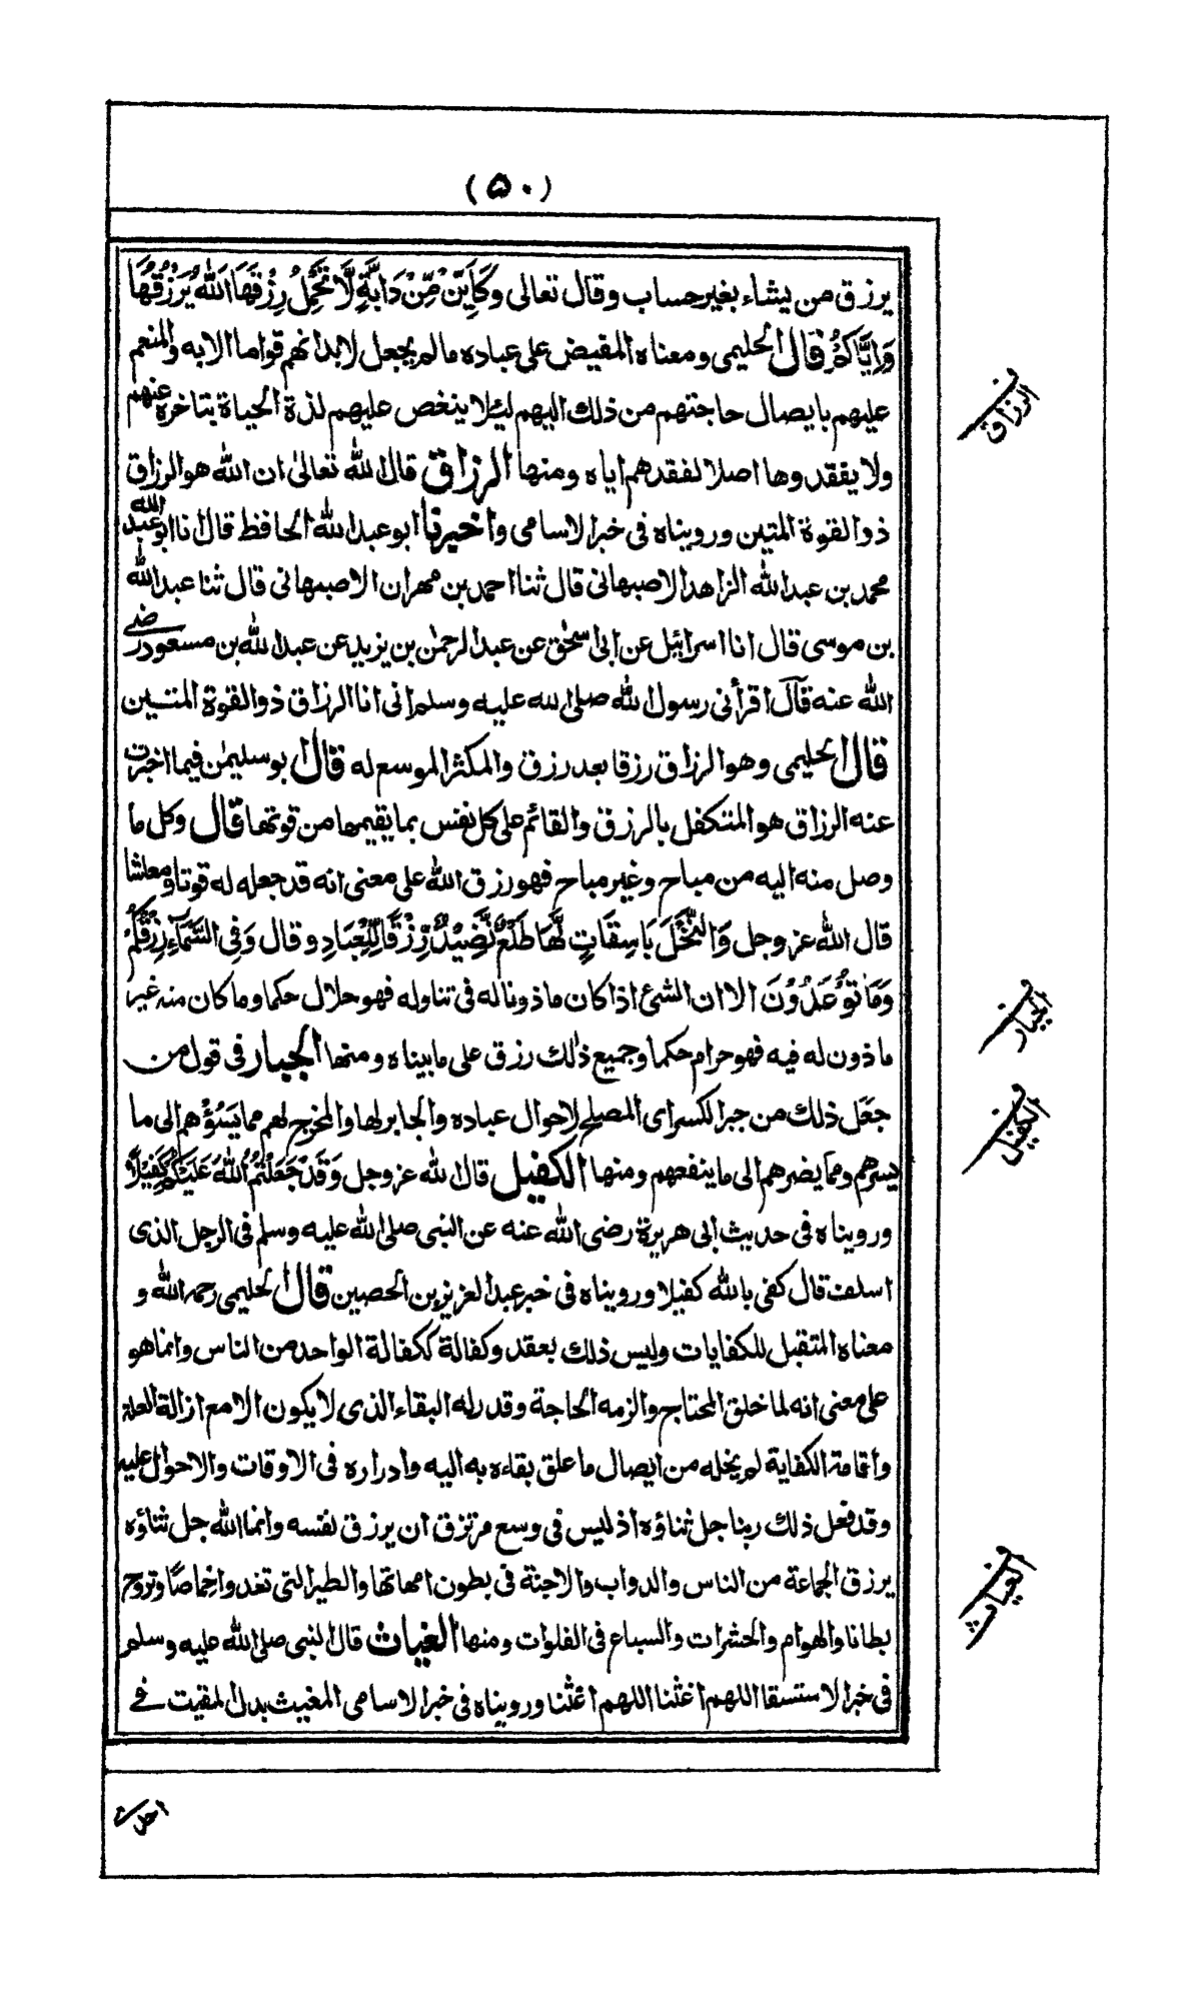 (۵۰)
يرزق من يشاء بغير حساب وقال تعالى وَكَاَيِّنْ مِّنْ دَابَّةٍ لَّا تَحْمِلُ رِزْقَهَا اَللّٰهُ يَرْزُقُهَا
وَاِيَّاكُمْ قال الحليمى ومعناه المفيض على عباده مالم يجعل لابدانهم قواما الابه والمنعم
عليهم بايصال حاجتهم من ذلك اليهم ليئلا ينغص عليهم لذة الحياة بتاخره عنهم
ولا يفقدوها اصلا لفقدهم اياه ومنها الرزاق قال الله تعالىٰ ان الله هو الرزاق
ذو القوة المتين ورويناه فى خبر الاسامى واخبرنا ابو عبد الله الحافظ قال انا ابو عبد الله
محمد بن عبد الله الزاهد الاصبهانى قال ثنا احمد بن مهران الاصبهانى قال ثنا عبد الله
بن موسى قال انا اسرائيل عن ابى اسحٰق عن عبد الرحمٰن بن يزيد عن عبد الله بن مسعود رضى
الله عنه قال اقرأنى رسول الله صلى الله عليه وسلم انى انا الرزاق ذو القوة المتين
قال الحليمى وهو الرزاق رزقا بعد رزق والمكثر الموسع له قال ابو سليمٰن فيما اخبرت
عنه الرزاق هو المتكفل بالرزق والقائم على كل نفس بما يقيمها من قوتها قال وكل ما
وصل منه اليه من مباح وغير مباح فهو رزق الله على معنى انه قد جعله له قوتا ومعاشا
قال الله عز وجل وَالنَّخْلَ بَاسِقَاتٍ لَّهَا طَلْعٌ نَّضِيْدٌ رِّزْقًا لِّلْعِبَادِ وقال وَفِى السَّمَاءِ رِزْقُكُمْ
وَمَا تُوْعَدُوْنَ الا ان الشئ اذا كان ماذونا له فى تناوله فهو حلال حكما وما كان منه غير
ماذون له فيه فهو حرام حكما وجميع ذلك رزق على ما بيناه ومنها الجبار فى قول من
جعل ذلك من جبر الكسر اى المصلح لاحوال عباده والجابر لها والمخرج لهم مما يسوؤهم الى ما
يسرهم ومما يضرهم الى ما ينفعهم ومنها الكفيل قال الله عز وجل وَقَدْ جَعَلْتُمُ اللّٰهَ عَلَيْكُمْ كَفِيْلًا
ورويناه فى حديث ابى هريرة رضى الله عنه عن النبى صلى الله عليه وسلم فى الرجل الذى
اسلف قال كفى بالله كفيلا ورويناه فى خبر عبد العزيز بن الحصين قال الحليمى رحمه الله و
معناه المتقبل للكفايات وليس ذلك بعقد وكفالة ككفالة الواحد من الناس وانما هو
على معنى انه لما خلق المحتاج والزمه الحاجة وقدر له البقاء الذى لا يكون الامع ازالة العلة
واقامة الكفاية لم يخله من ايصال ما علق بقاءه به اليه وادراره فى الاوقات والاحوال عليه
وقد فعل ذلك ربنا جل ثناؤه اذ ليس فى وسع مرتزق ان يرزق نفسه وانما الله جل ثناؤه
يرزق الجماعة من الناس والدواب والاجنة فى بطون امهاتها والطير التى تغدوا خماصا وتروح
بطانا والهوام والحشرات والسباع فى الفلوات ومنها الغياث قال النبى صلى الله عليه وسلم
فى خبر الاستسقا اللهم اغثنا اللهم اغثنا ورويناه فى خبر الاسامى المغيث بدل المقيت فے
الرزاق
الجبار
الكفيل
الغياث